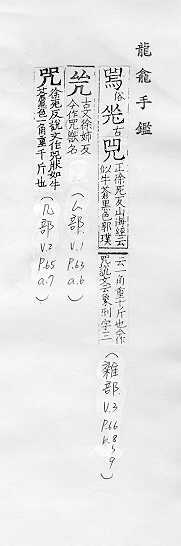 龍龕手鑑
𤉡俗 𠒅古 咒正徐死反山海經云
似牛蒼黑色郭璞
云一角重千斤也今作
兕説文云象形字三
(雜部 V.3 P.66 b.8, 9)
𠒃古文徐姊反
今作兕獸名
(厶部 V.1 P.63 a.6)
兕徐死反説文作兕服如牛
蒼黑色一角重千斤也
(几部 V.2 P.65 a.7)